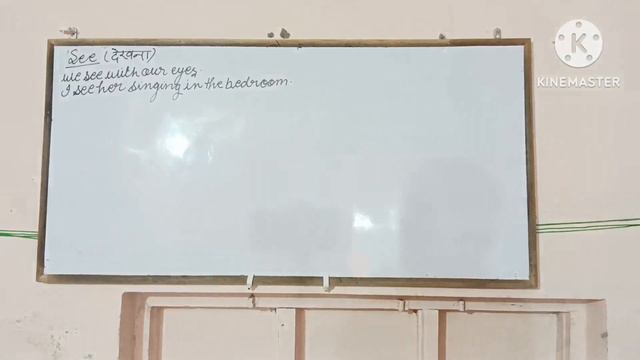 See (देखना)
we see with our eyes.
I see her singing in the bedroom.
KINEMASTER